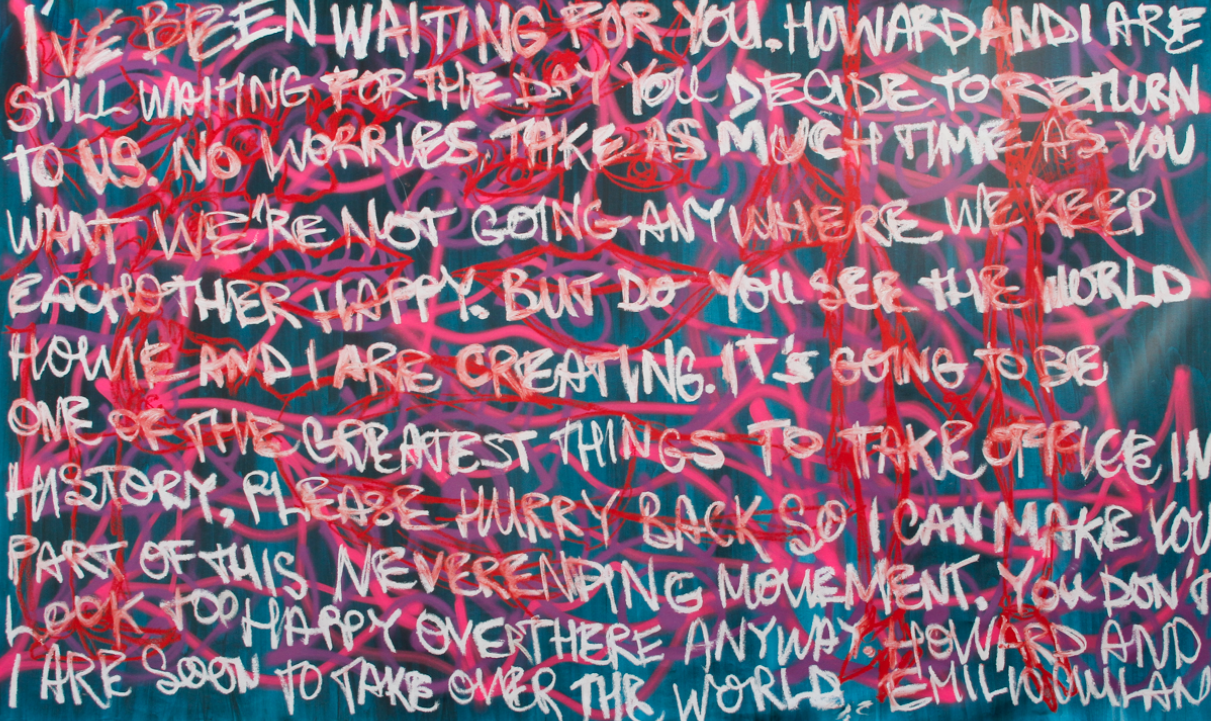 I'VE BEEN WAITING FOR YOU. HOWARD AND I ARE
STILL WAITING FOR THE DAY YOU DECIDE TO RETURN
TO US. NO WORRIES. TAKE AS MUCH TIME AS YOU
WANT WE'RE NOT GOING ANYWHERE WE KEEP
EACHOTHER HAPPY. BUT DO YOU SEE THE WORLD
HOWIE AND I ARE CREATING. IT'S GOING TO BE
ONE OF THE GREATEST THINGS TO TAKE OFFICE IN
HISTORY, PLEASE HURRY BACK SO I CAN MAKE YOU
PART OF THIS NEVERENDING MOVEMENT. YOU DON'T
LOOK TOO HAPPY OVER THERE ANYWAY. HOWARD AND
I ARE SOON TO TAKE OVER THE WORLD.